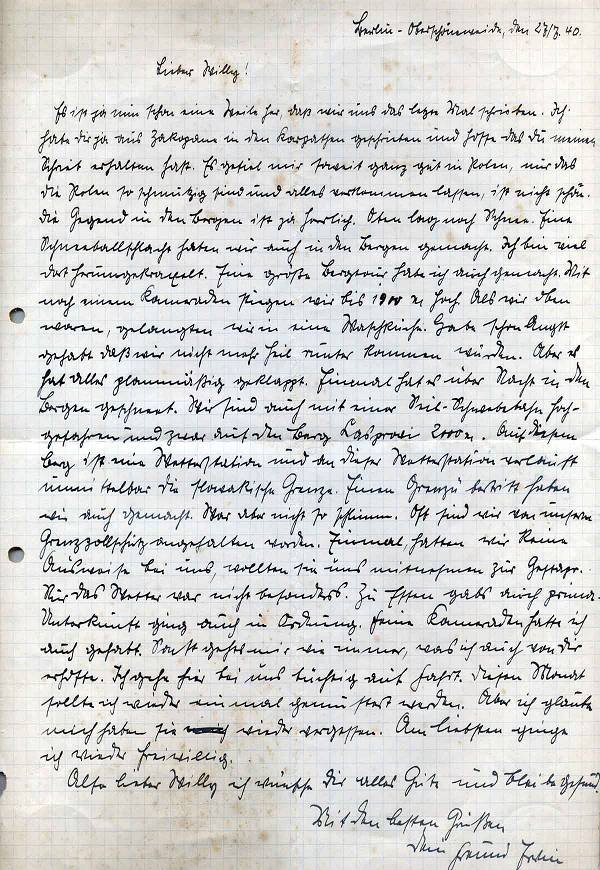 Berlin-Oberschöneweide, den 27/7. 40.
Lieber Willy!
Es ist ja nun schon eine Weile her, daß wir uns das letzte Mal schrieben. Ich
habe dir ja aus Zakopane in den Karpathen geschrieben und hoffe das du meinen
Schrieb erhalten hast. Es gefiel mir soweit ganz gut in Polen, nur das
die Polen so schmutzig sind und alles verkommen lassen, ist nicht schön.
Die Gegend in den Bergen ist ja herrlich. Oben lag noch Schnee. Eine
Schneeballschlacht haben wir auch in den Bergen gemacht. Ich bin viel
dort herumgekraxelt. Eine größe Bergtour habe ich auch gemacht. Mit
noch einem Kameraden stiegen wir bis 1900 m hoch. Als wir oben
waren, gelangten wir in eine Waschküche. Habe schon Angst
gehabt daß wir nicht mehr heil runter kommen würden. Aber es
hat alles planmäßig geklappt. Einmal hat es über Nacht in den
Bergen geschneit. Wir sind auch mit einer Seil-Schwebebahn hoch-
gefahren und zwar auf den Berg Kasprowi 2000 m. Auf diesem
Berg ist eine Wetterstation und an dieser Wetterstation verläuft
unmittelbar die slowakische Grenze. Einen Grenzübertritt haben
wir auch gemacht. War aber nicht so schlimm. Oft sind wir von unseren
Grenzzollschütz angehalten worden. Einmal, hatten wir keine
Ausweise bei uns, wollten sie uns mitnehmen zur Gestapo.
Nur das Wetter war nicht besonders. Zu Essen gabs auch prima.
Unterkunft ging auch in Ordnung. Feine Kameraden hatte ich
auch gehabt. Sonst gehts mir wie immer, was ich auch von dir
erhoffe. Ich gehe hier bei uns tüchtig auf Fahrt. Diesen Monat
sollte ich wieder einmal gemustert werden. Aber ich glaube
mich haben sie wieder vergessen. Am liebsten ginge
ich wieder freiwillig.
Also lieber Willy ich wünsche dir alles Gute und bleibe gesund.
Mit den besten Grüßen
dein Freund Erwin